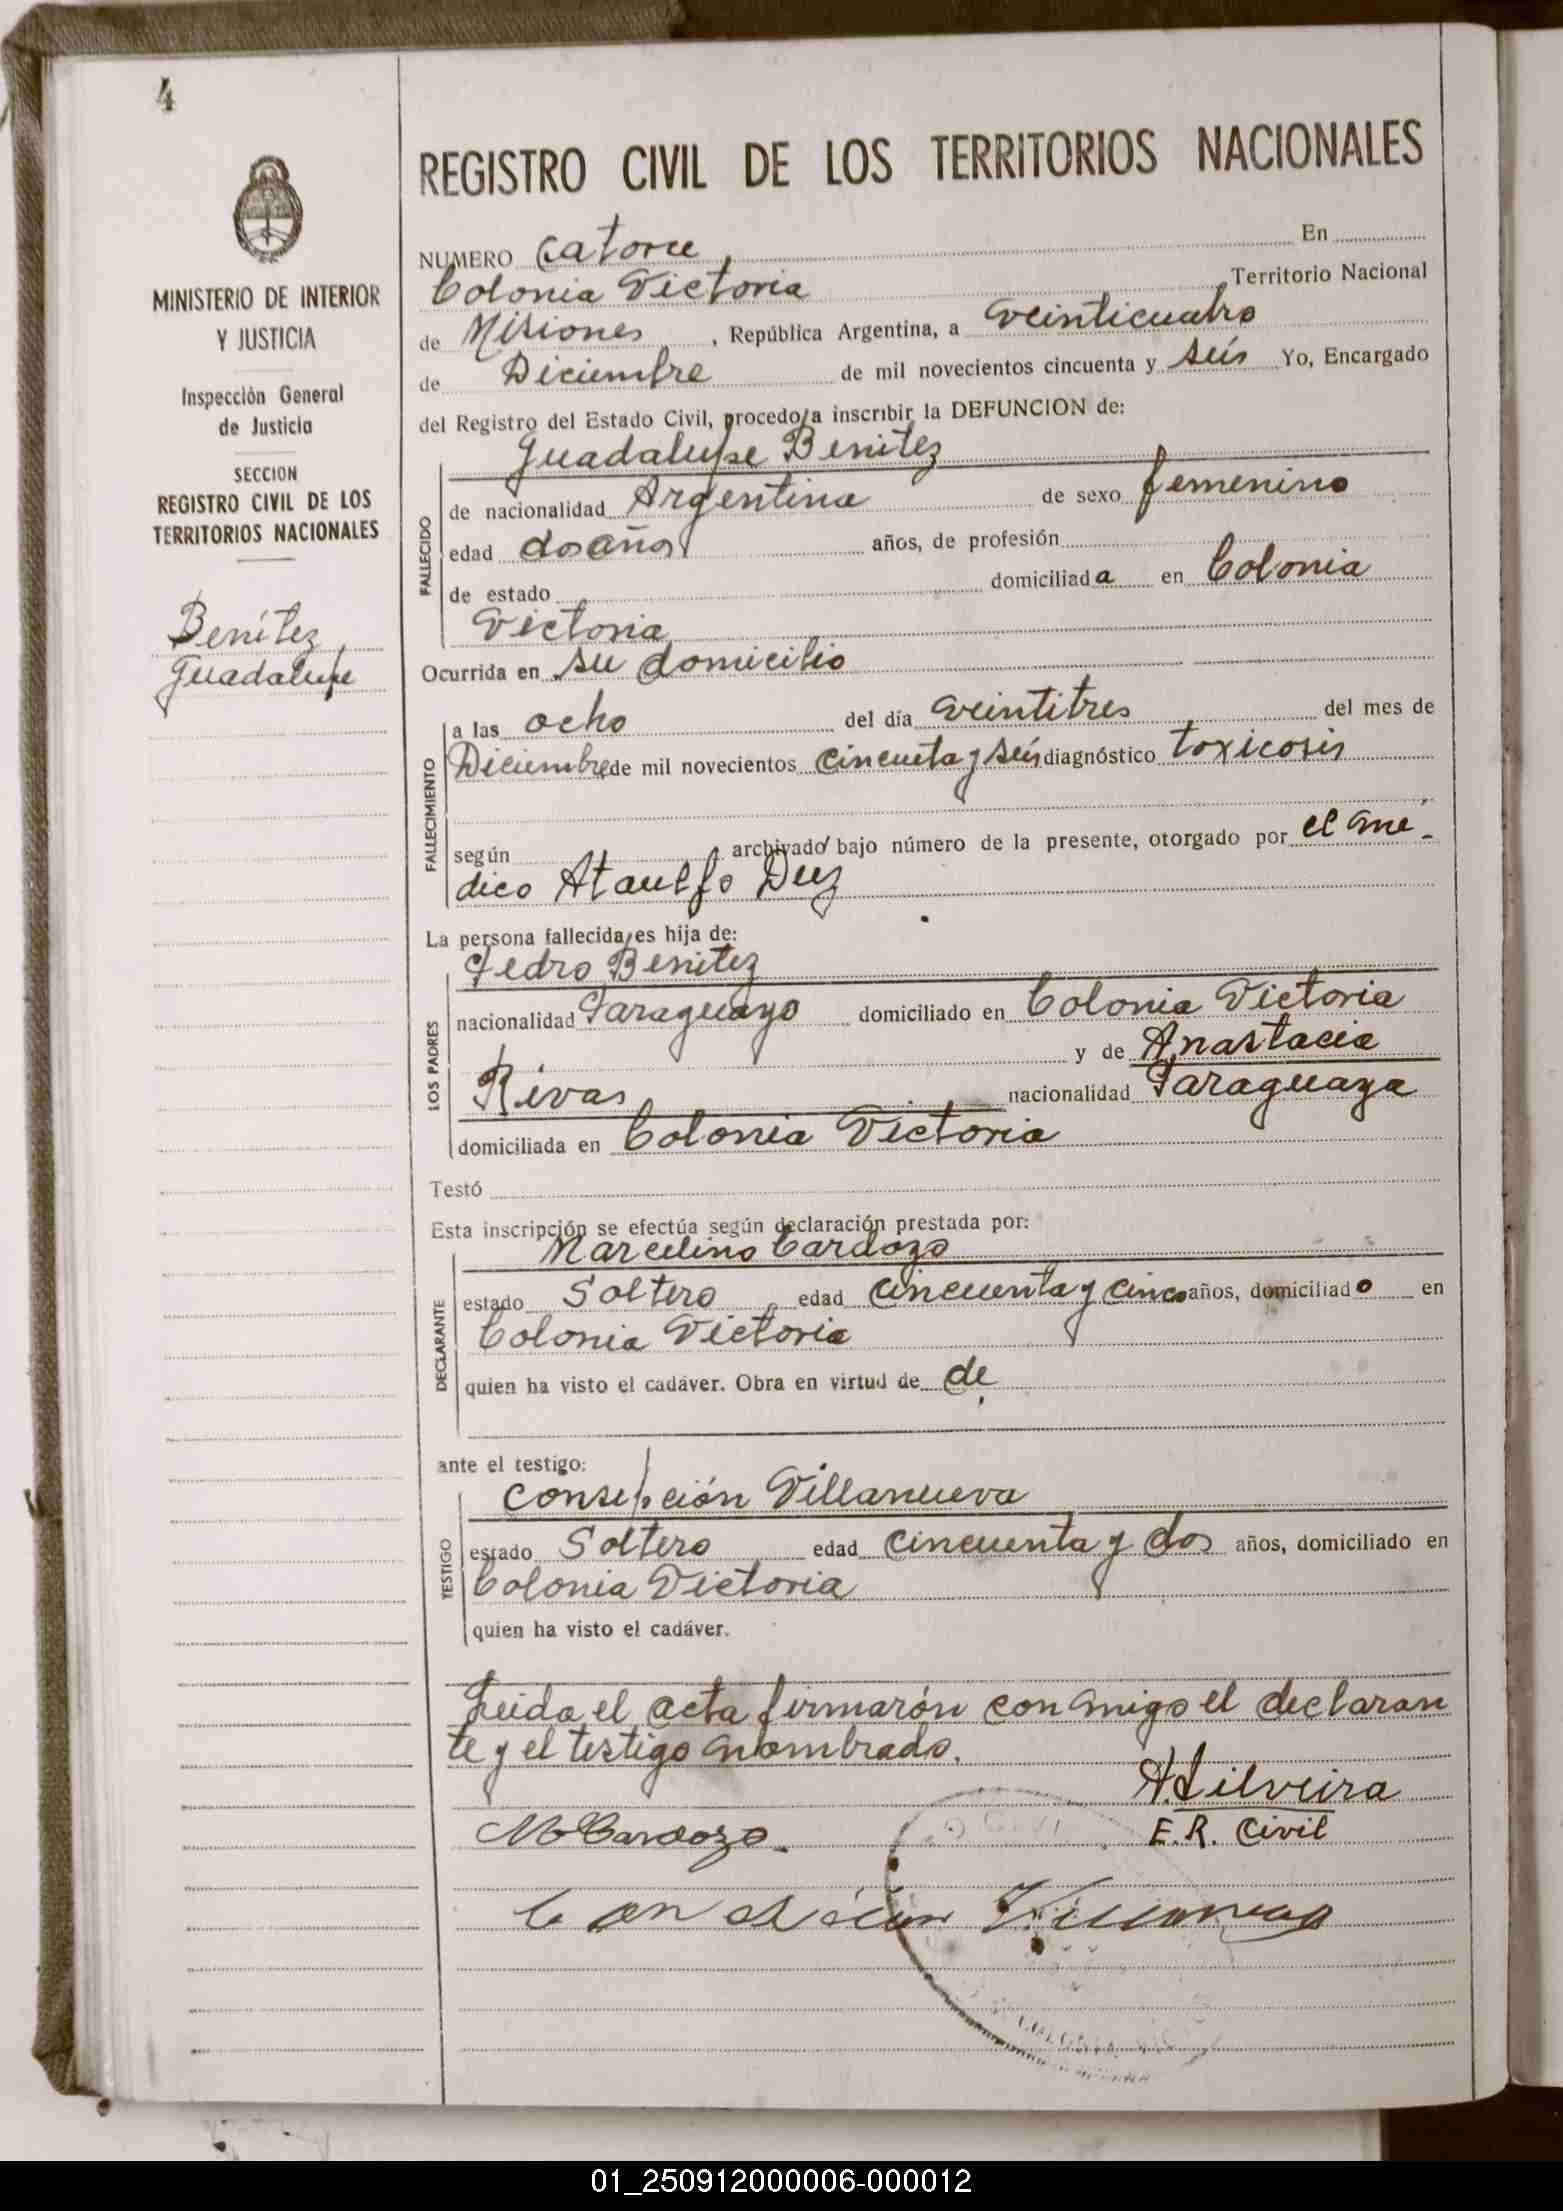 4
MINISTERIO DE INTERIOR
Y JUSTICIA
Inspección General
de Justicia
SECCION
REGISTRO CIVIL DE LOS
TERRITORIOS NACIONALES
Benítez
Guadalupe
REGISTRO CIVIL DE LOS TERRITORIOS NACIONALES
NUMERO Catorce En
Colonia Victoria Territorio Nacional
de Misiones , República Argentina, a veinticuatro
de Diciembre de mil novecientos cincuenta y seis Yo, Encargado
del Registro del Estado Civil, procedo a inscribir la DEFUNCION de:
Guadalupe Benitez
FALLECIDO
de nacionalidad Argentina de sexo femenino
edad dos años años, de profesión
de estado domiciliada en Colonia
Victoria
Ocurrida en su domicilio
FALLECIMIENTO
a las ocho del día veintitres del mes de
Diciembre de mil novecientos cincueta y seis diagnóstico toxicosis
según archivado bajo número de la presente, otorgado por el me-
dico Ataulfo
La persona fallecida es hija de:
Pedro Benitez
LOS PADRES
nacionalidad Paraguayo domiciliado en Colonia Victoria
y de Anastacia
Rivas nacionalidad Paraguaya
domiciliada en Colonia Victoria
Testó
Esta inscripción se efectúa según declaración prestada por:
Marcelino Cardozo
DECLARANTE
estado Soltero edad cincuenta y cinco años, domiciliado en
Colonia Victoria
quien ha visto el cadáver. Obra en virtud de de
ante el testigo:
Consepción Villanueva
TESTIGO
estado Soltero edad cincuenta y dos años, domiciliado en
Colonia Victoria
quien ha visto el cadáver.
Leida el acta firmarón con migo el declaran
te y el testigo nombrado.
A. Silveira
M Cardozo
E. R. Civil
01_250912000006-000012